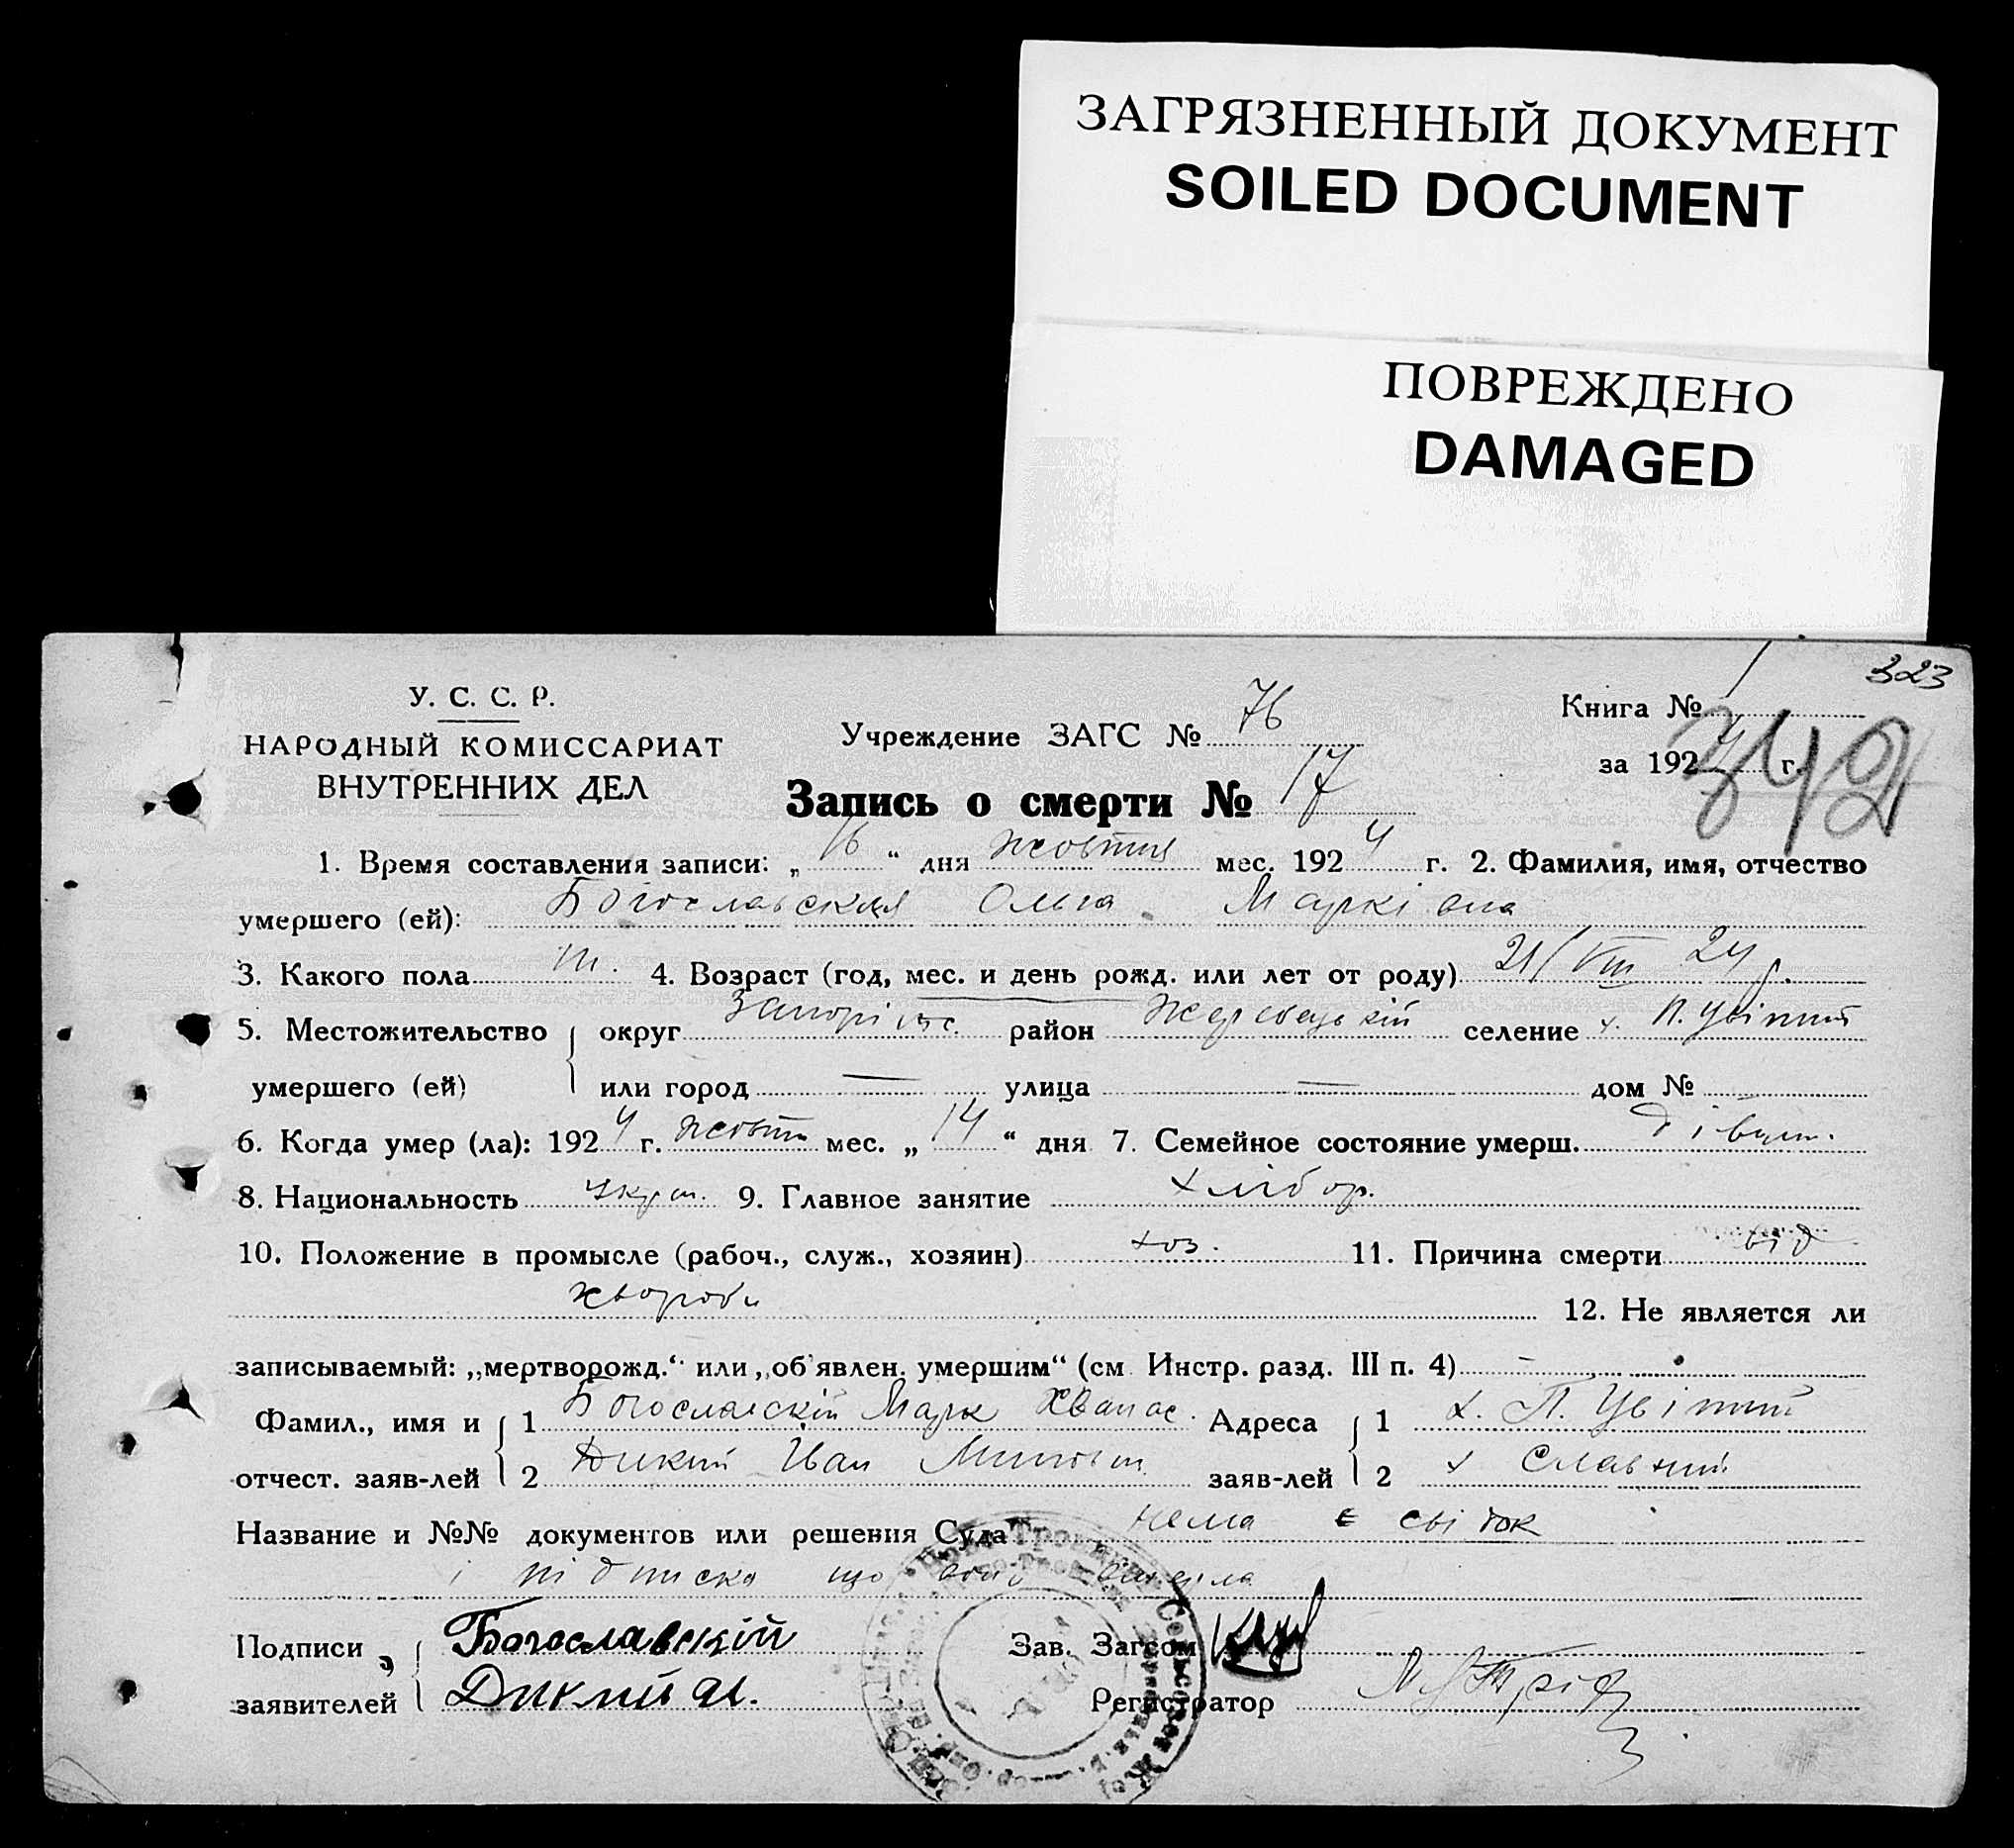 ЗАГРЯЗНЕННЫЙ ДОКУМЕНТ
SOILED DOCUMENT
ПОВРЕЖДЕНО
DAMAGED
323
У. С. С. Р.
НАРОДНЫЙ КОМИССАРИАТ
ВНУТРЕННИХ ДЕЛ
Учреждение ЗАГС № 76
Книга № 1
за 1924 г.
342
Запись о смерти № 17
1. Время составления записи: „16“ дня жовтня мес. 1924 г. 2. Фамилия, имя, отчество
умершего (ей): Богославская Ольга Марківна
3. Какого пола ж. 4. Возраст (год, мес. и день рожд. или лет от роду) 21/VIII 24 р.
5. Местожительство округ Запоріжс. район Жеребецькій селение х. П. Цвітний
умершего (ей) или город — улица — дом №
6. Когда умер (ла): 1924 г. жовтн мес. „14“ дня 7. Семейное состояние умерш. дівчин.
8. Национальность укр. 9. Главное занятие хлібор.
10. Положение в промысле (рабоч., служ., хозяин) хоз. 11. Причина смерти від
хвороби 12. Не является ли
записываемый: „мертворожд.“ или „об'явлен. умершим“ (см. Инстр. разд. III п. 4) -
Фамил., имя и 1 Богославскій Марк Хванас. Адреса 1 х. П. Цвітний
отчест. заяв-лей 2 Дикий Іван заяв-лей 2 х Славний
Название и №№ документов или решения Суда нема є свідок
і підписка що вона вмерла
Подписи Богославскій Зав. Загсом
заявителей Дикий И. Регистратор